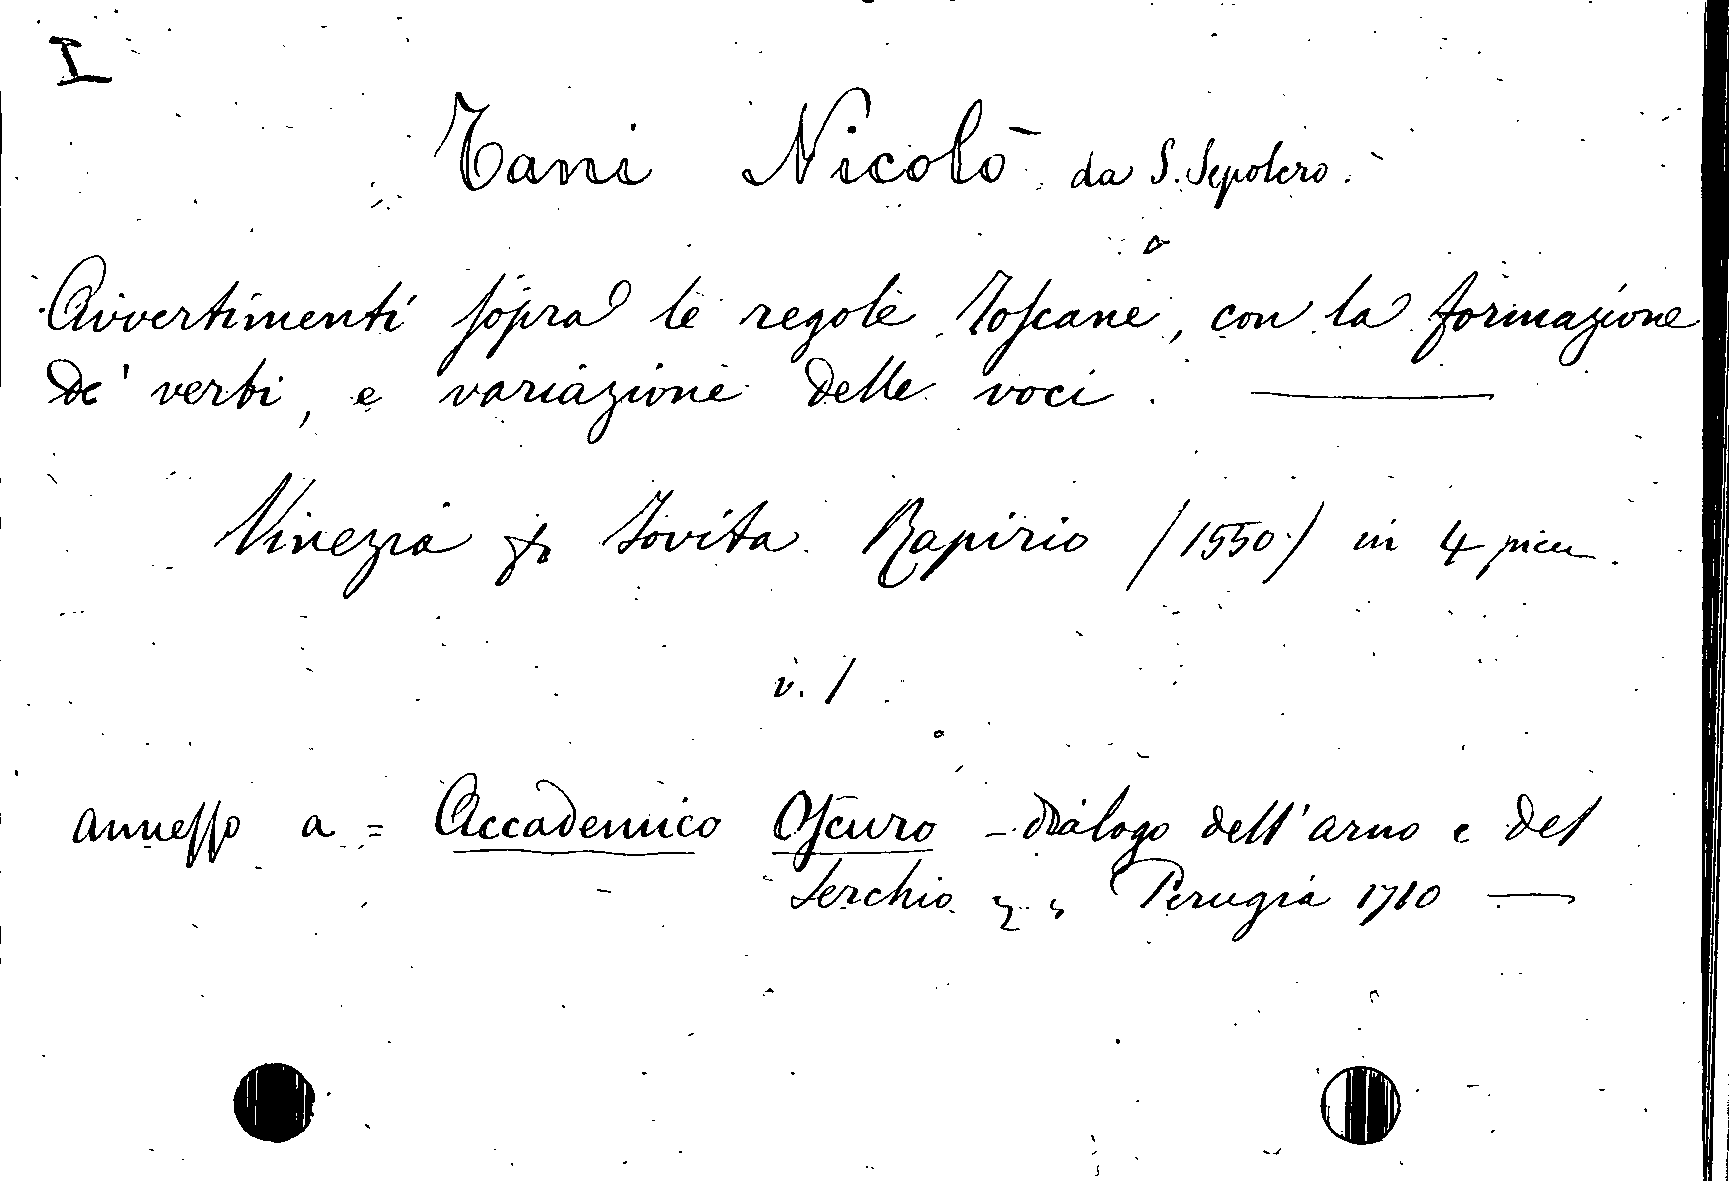 I
Tani Nicolò da S. Sepolcro.
Avvertimenti sopra le regole Toscane, con la formazione
de' verbi, e variazione delle voci.
Vinezia Jovita Rapirio /1550/ in 4 picc
v. /
annesso a = Accademico Oscuro - dialogo dell'arno e del
Serchio Perugia 1710 —